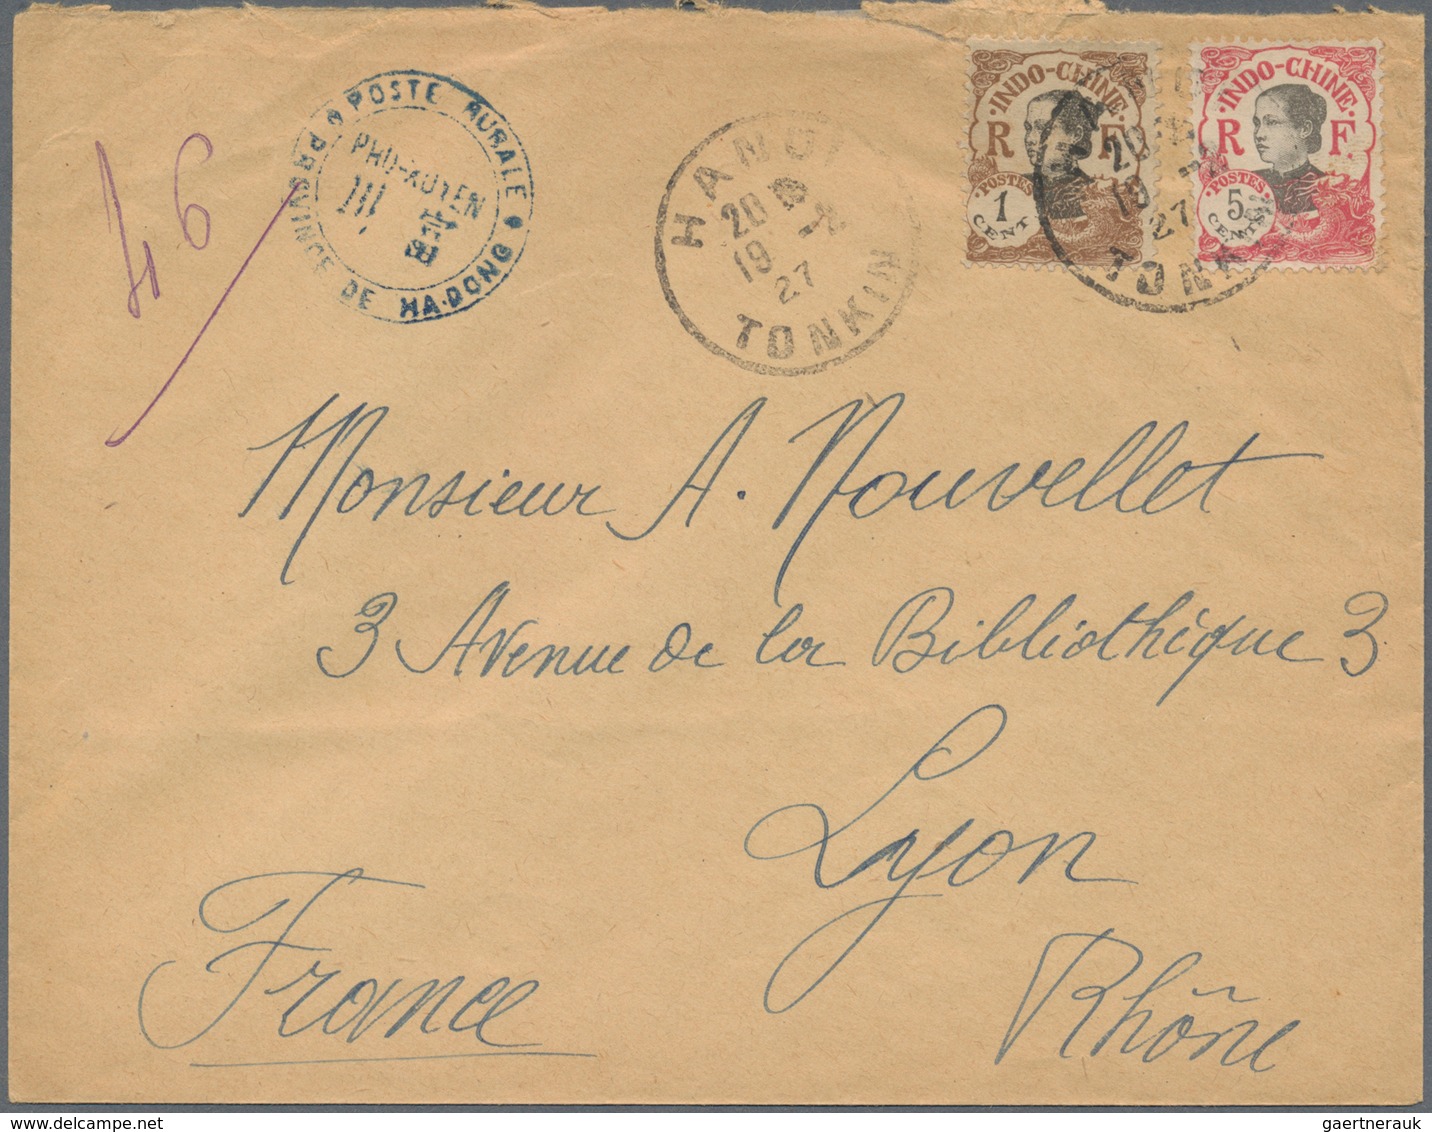 46
POSTE RURALE
PROVINCE DE HA-DONG
PHU-XUYEN
III
HANOI
20
19 -2
27
TONKIN
INDO-CHINE
R F
POSTES
1
CENT
INDO-CHINE
R F.
POSTES
5
CENTS
20
19
27
TONKIN
Monsieur A. Nouvellet
3 Avenue de la Bibliothèque 3
Lyon
Rhône
France
gaertnerauk